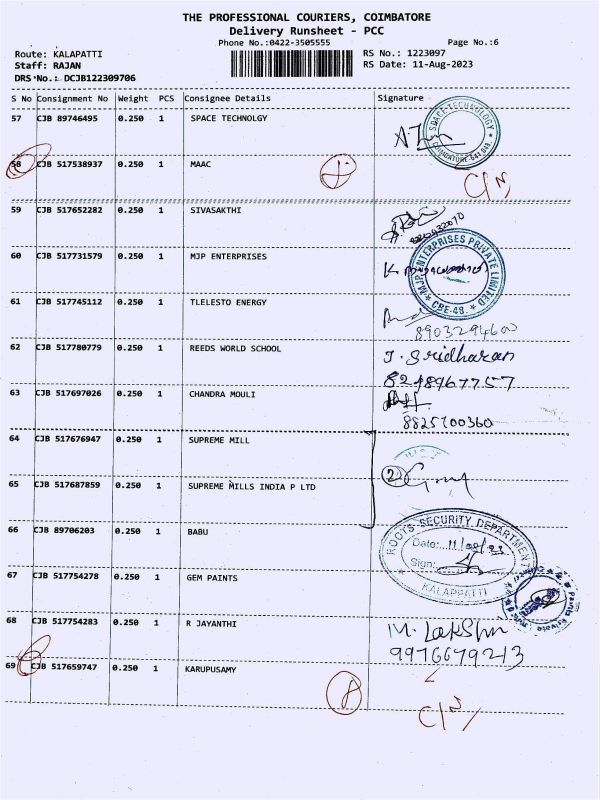 THE PROFESSIONAL COURIERS, COIMBATORE
Delivery Runsheet - PCC
Phone No.:0422-3505555
Page No.:6
Route: KALAPATTI
RS No.: 1223097
Staff: RAJAN
RS Date: 11-Aug-2023
DRS No.: DCJB122309706
S No Consignment No Weight PCS Consignee Details Signature
57 CJB 89746495 0.250 1 SPACE TECHNOLGY
SPACE TECHNOLOGY
58 CJB 517538937 0.250 1 MAAC
C/N
59 CJB 517652282 0.250 1 SIVASAKTHI
60 CJB 517731579 0.250 1 MJP ENTERPRISES
MJP ENTERPRISES PRIVATE LIMITED
CBE-48.
61 CJB 517745112 0.250 1 TLELESTO ENERGY
8903294600
62 CJB 517780779 0.250 1 REEDS WORLD SCHOOL J. Sridharan
8248967757
63 CJB 517697026 0.250 1 CHANDRA MOULI
8825700360
64 CJB 517676947 0.250 1 SUPREME MILL
2
65 CJB 517687859 0.250 1 SUPREME MILLS INDIA P LTD
66 CJB 89706203 0.250 1 BABU
ROOTS SECURITY DEPARTMENT
Date: 11/08/23
Sign:
KALAPPATTI
67 CJB 517754278 0.250 1 GEM PAINTS
68 CJB 517754283 0.250 1 R JAYANTHI M. Lakshmi
9976679213
69 CJB 517659747 0.250 1 KARUPUSAMY
8
C/N